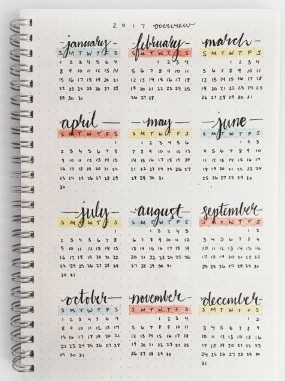 2017 overview
january
S M T W T F S
1 2 3 4 5 6 7
8 9 10 11 12 13 14
15 16 17 18 19 20 21
22 23 24 25 26 27 28
29 30 31
february
S M T W T F S
1 2 3 4
5 6 7 8 9 10 11
12 13 14 15 16 17 18
19 20 21 22 23 24 25
26 27 28
march
S M T W T F S
1 2 3 4
5 6 7 8 9 10 11
12 13 14 15 16 17 18
19 20 21 22 23 24 25
26 27 28 29 30 31
april
S M T W T F S
1
2 3 4 5 6 7 8
9 10 11 12 13 14 15
16 17 18 19 20 21 22
23 24 25 26 27 28 29
30
may
S M T W T F S
1 2 3 4 5 6
7 8 9 10 11 12 13
14 15 16 17 18 19 20
21 22 23 24 25 26 27
28 29 30 31
june
S M T W T F S
1 2 3
4 5 6 7 8 9 10
11 12 13 14 15 16 17
18 19 20 21 22 23 24
25 26 27 28 29 30
july
S M T W T F S
1
2 3 4 5 6 7 8
9 10 11 12 13 14 15
16 17 18 19 20 21 22
23 24 25 26 27 28 29
30 31
august
S M T W T F S
1 2 3 4 5
6 7 8 9 10 11 12
13 14 15 16 17 18 19
20 21 22 23 24 25 26
27 28 29 30 31
september
S M T W T F S
1 2
3 4 5 6 7 8 9
10 11 12 13 14 15 16
17 18 19 20 21 22 23
24 25 26 27 28 29 30
october
S M T W T F S
1 2 3 4 5 6 7
8 9 10 11 12 13 14
15 16 17 18 19 20 21
22 23 24 25 26 27 28
29 30 31
november
S M T W T F S
1 2 3 4
5 6 7 8 9 10 11
12 13 14 15 16 17 18
19 20 21 22 23 24 25
26 27 28 29 30
december
S M T W T F S
1 2
3 4 5 6 7 8 9
10 11 12 13 14 15 16
17 18 19 20 21 22 23
24 25 26 27 28 29 30
31